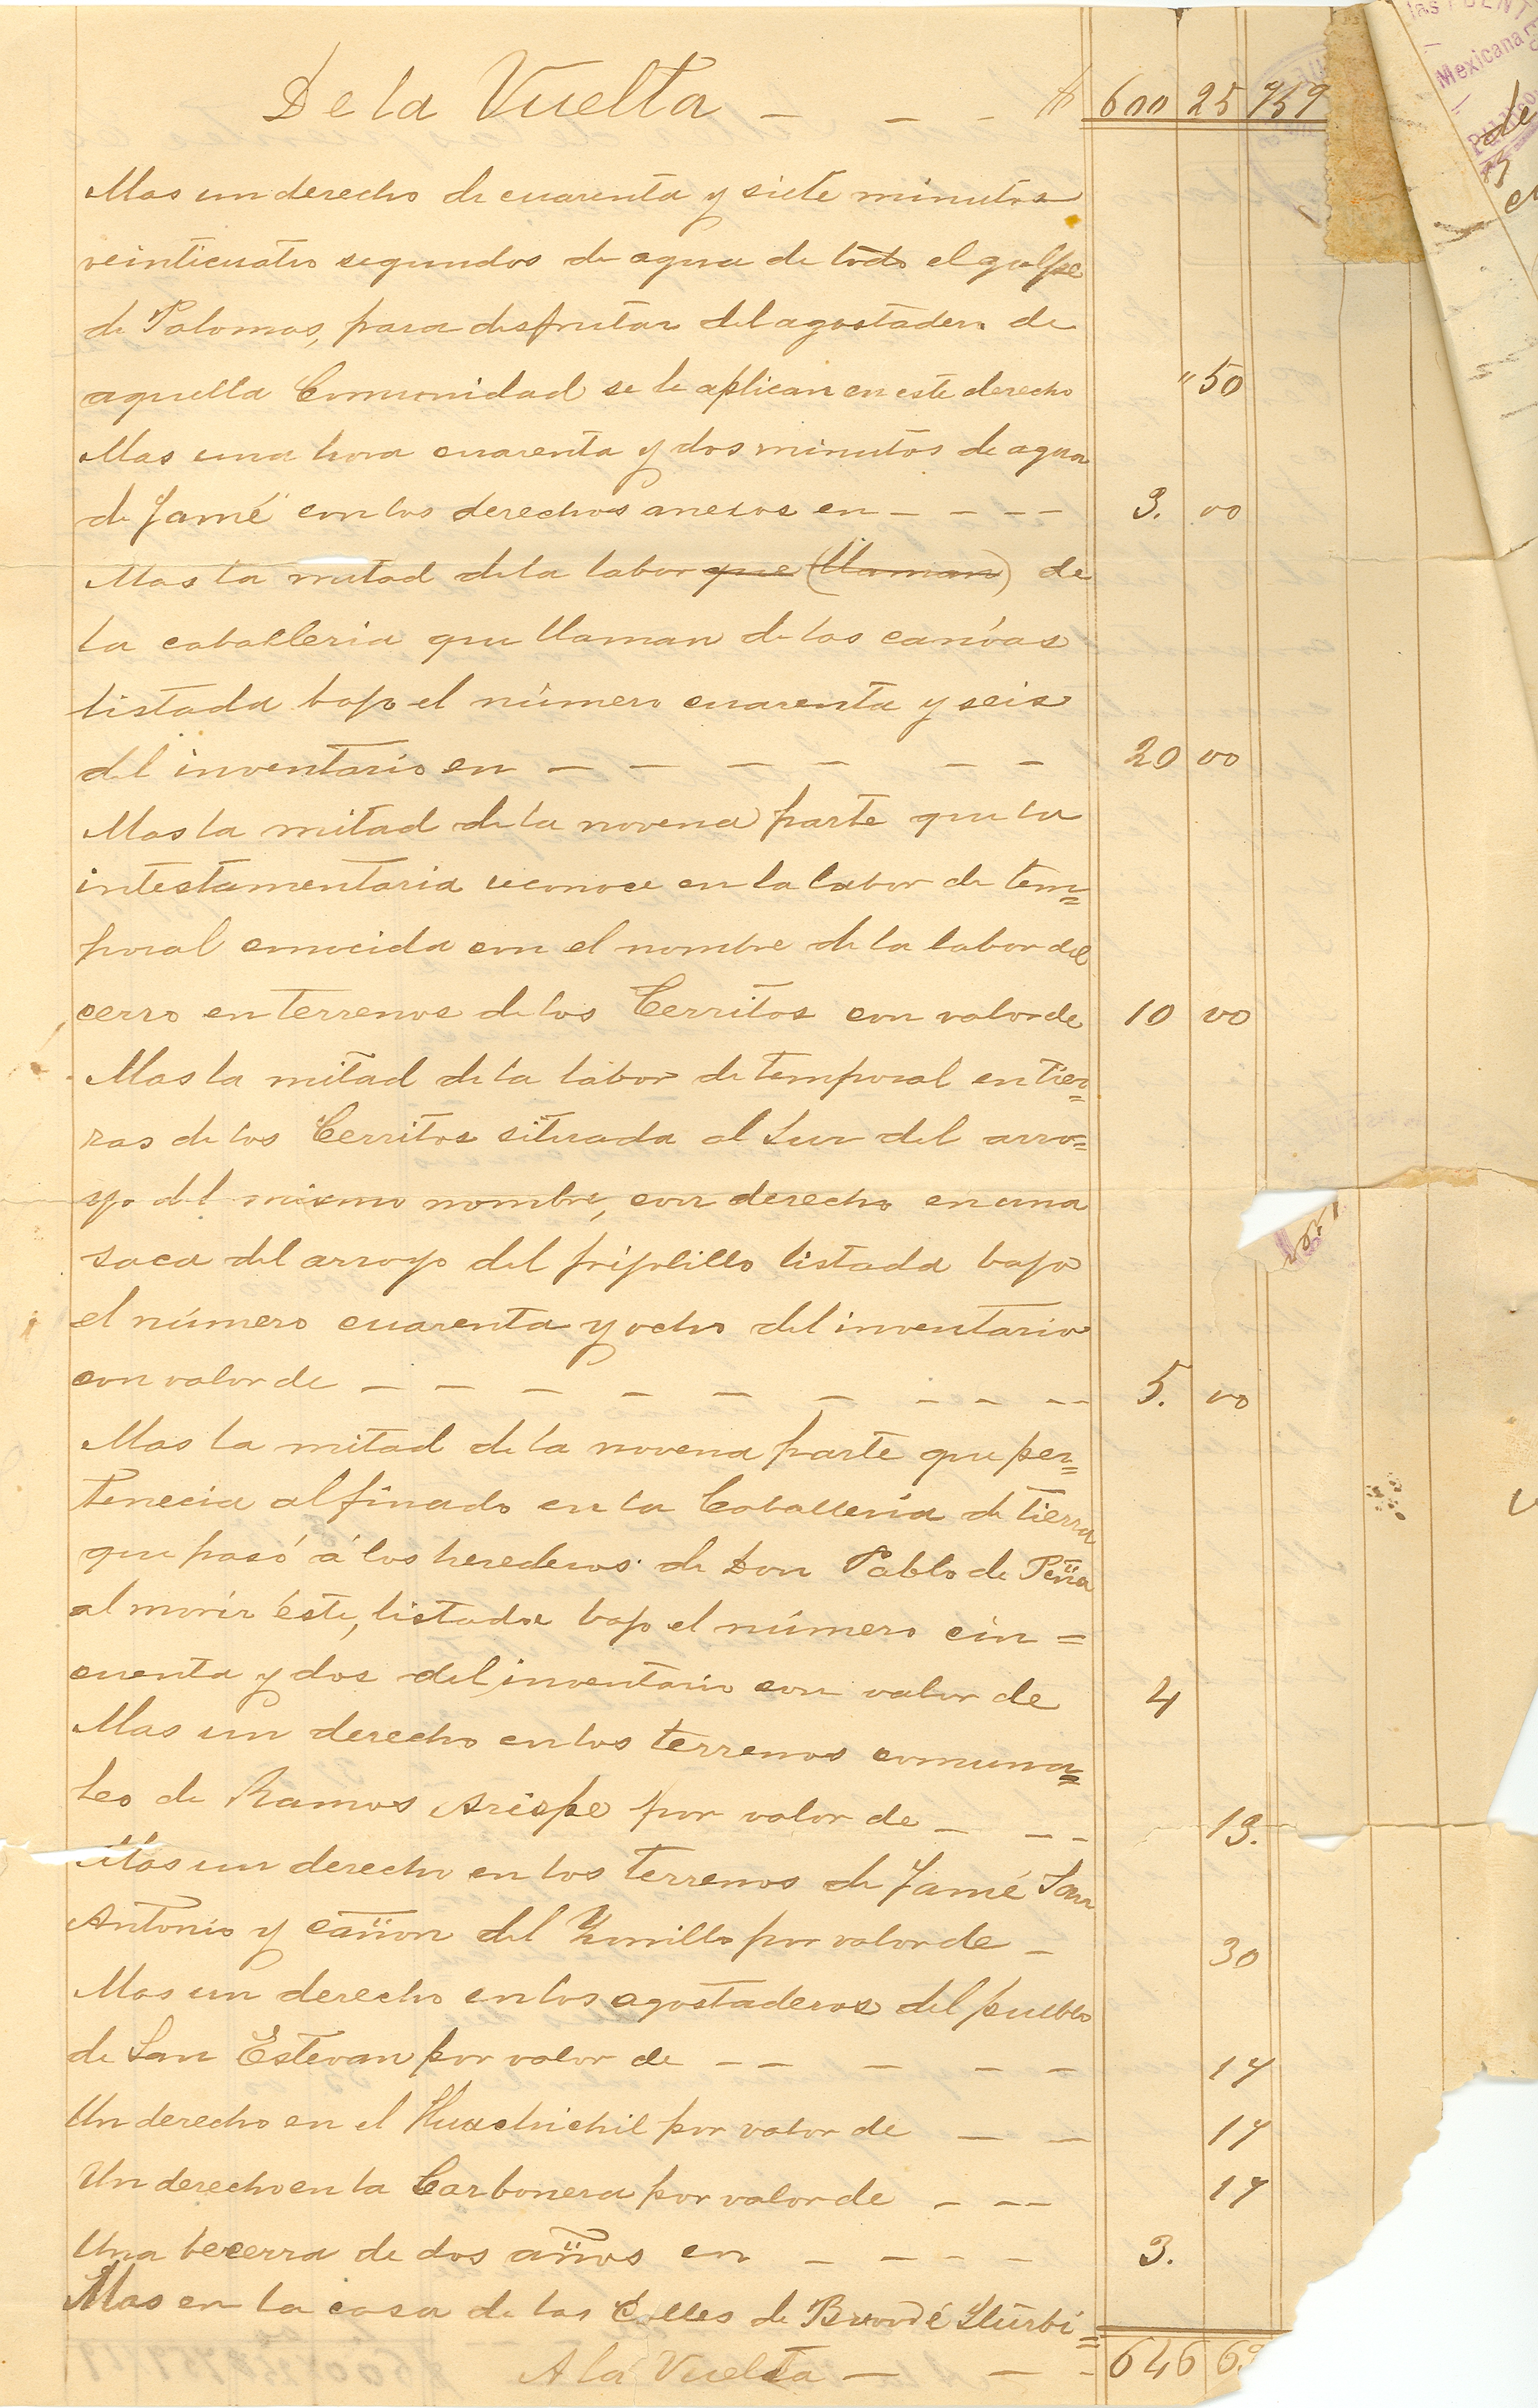 De la Vuelta — — - $ 600 25 759
Mas un derecho de cuarenta y siete minutos
veinticuatro segundos de agua de todo el golpe
de Palomas, para disfrutar del agostadero de
aquella Comunidad se le aplican en este derecho " 50
Mas una hora cuarenta y dos minutos de agua
de Jamé con los derechos anexos en - - - - 3. 00
Mas la mitad de la labor que (llaman) de
la caballeria que llaman de las canóas
listada bajo el número cuarenta y seis
del inventario en — — — — — — 20 00
Mas la mitad de la novena parte que la
intestamentaria reconoce en la labor de tem=
poral conocida con el nombre de la labor del
cerro en terrenos de los Cerritos con valor de 10 00
Mas la mitad de la labor de temporal en tier=
ras de los Cerritos situada al Sur del arro=
yo del mismo nombre, con derecho en una
saca del arroyo del frijolillo listada bajo
el número cuarenta y ocho del inventario
con valor de — — — — — — - - -- 5. 00
Mas la mitad de la novena parte que per=
tenecia al finado en la Caballeria de tierra
que pasó á los herederos de Don Pablo de Peña
al morir éste, listada bajo el número cin=
cuenta y dos del inventario con valor de 4
Mas un derecho en los terrenos comuna=
les de Ramos Arispe por valor de — - - 13.
Mas un derecho en los terrenos de Jamé San
Antonio y cañon del por valor de - 30
Mas un derecho en los agostaderos del pueblo
de San Estevan por valor de - - — — - 17
Un derecho en el Huachichil por valor de — — 17
Un derecho en la Carbonera por valor de - -- 17
Una becerra de dos años en - - - - 3.
Mas en la casa de las Calles de é Yturbi=
A la Vuelta — — - 646 6
las
Mexicana
de